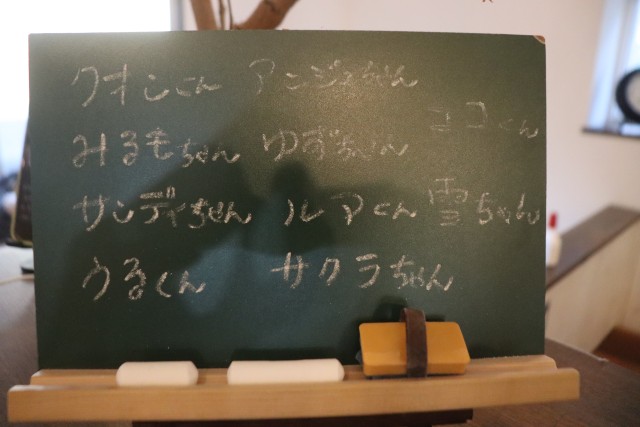 クオンくん アンジュちゃん
ココくん
みるもちゃん ゆずちゃん
サンディちゃん ルアくん 雪ちゃん
うるくん サクラちゃん